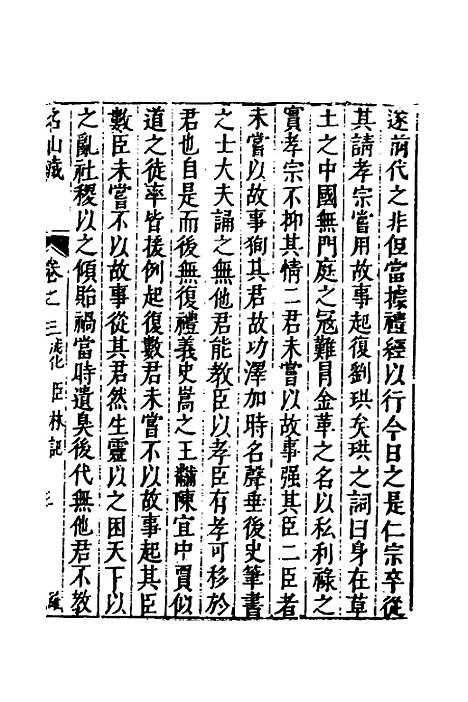 遂前代之非但當據禮經以行今日之是仁宗卒從
其請孝宗嘗用故事起復劉珙矣珙之詞曰身在草
土之中國無門庭之冦難冐金革之名以私利祿之
實孝宗不抑其情二君未嘗以故事强其臣二臣者
未嘗以故事狥其君故功澤加時名聲垂後史筆書
之士大夫誦之無他君能教臣以孝臣有孝可移於
君也自是而後無復禮義史嵩之王黼陳宜中賈似
道之徒率皆援例起復數君未嘗不以故事起其臣
數臣未嘗不以故事從其君然生靈以之困天下以
之亂社稷以之傾貽禍當時遺臭後代無他君不教
名山藏 卷之 三 臣林記